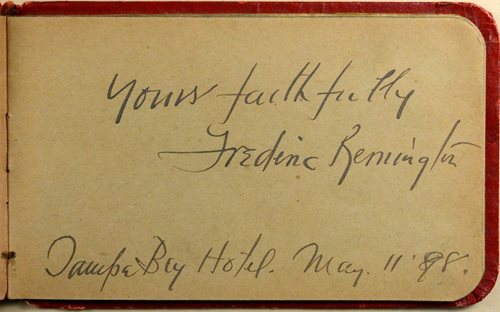 Yours faithfully
Frederic Remington
Tampa Bay Hotel. May. 11 '98.